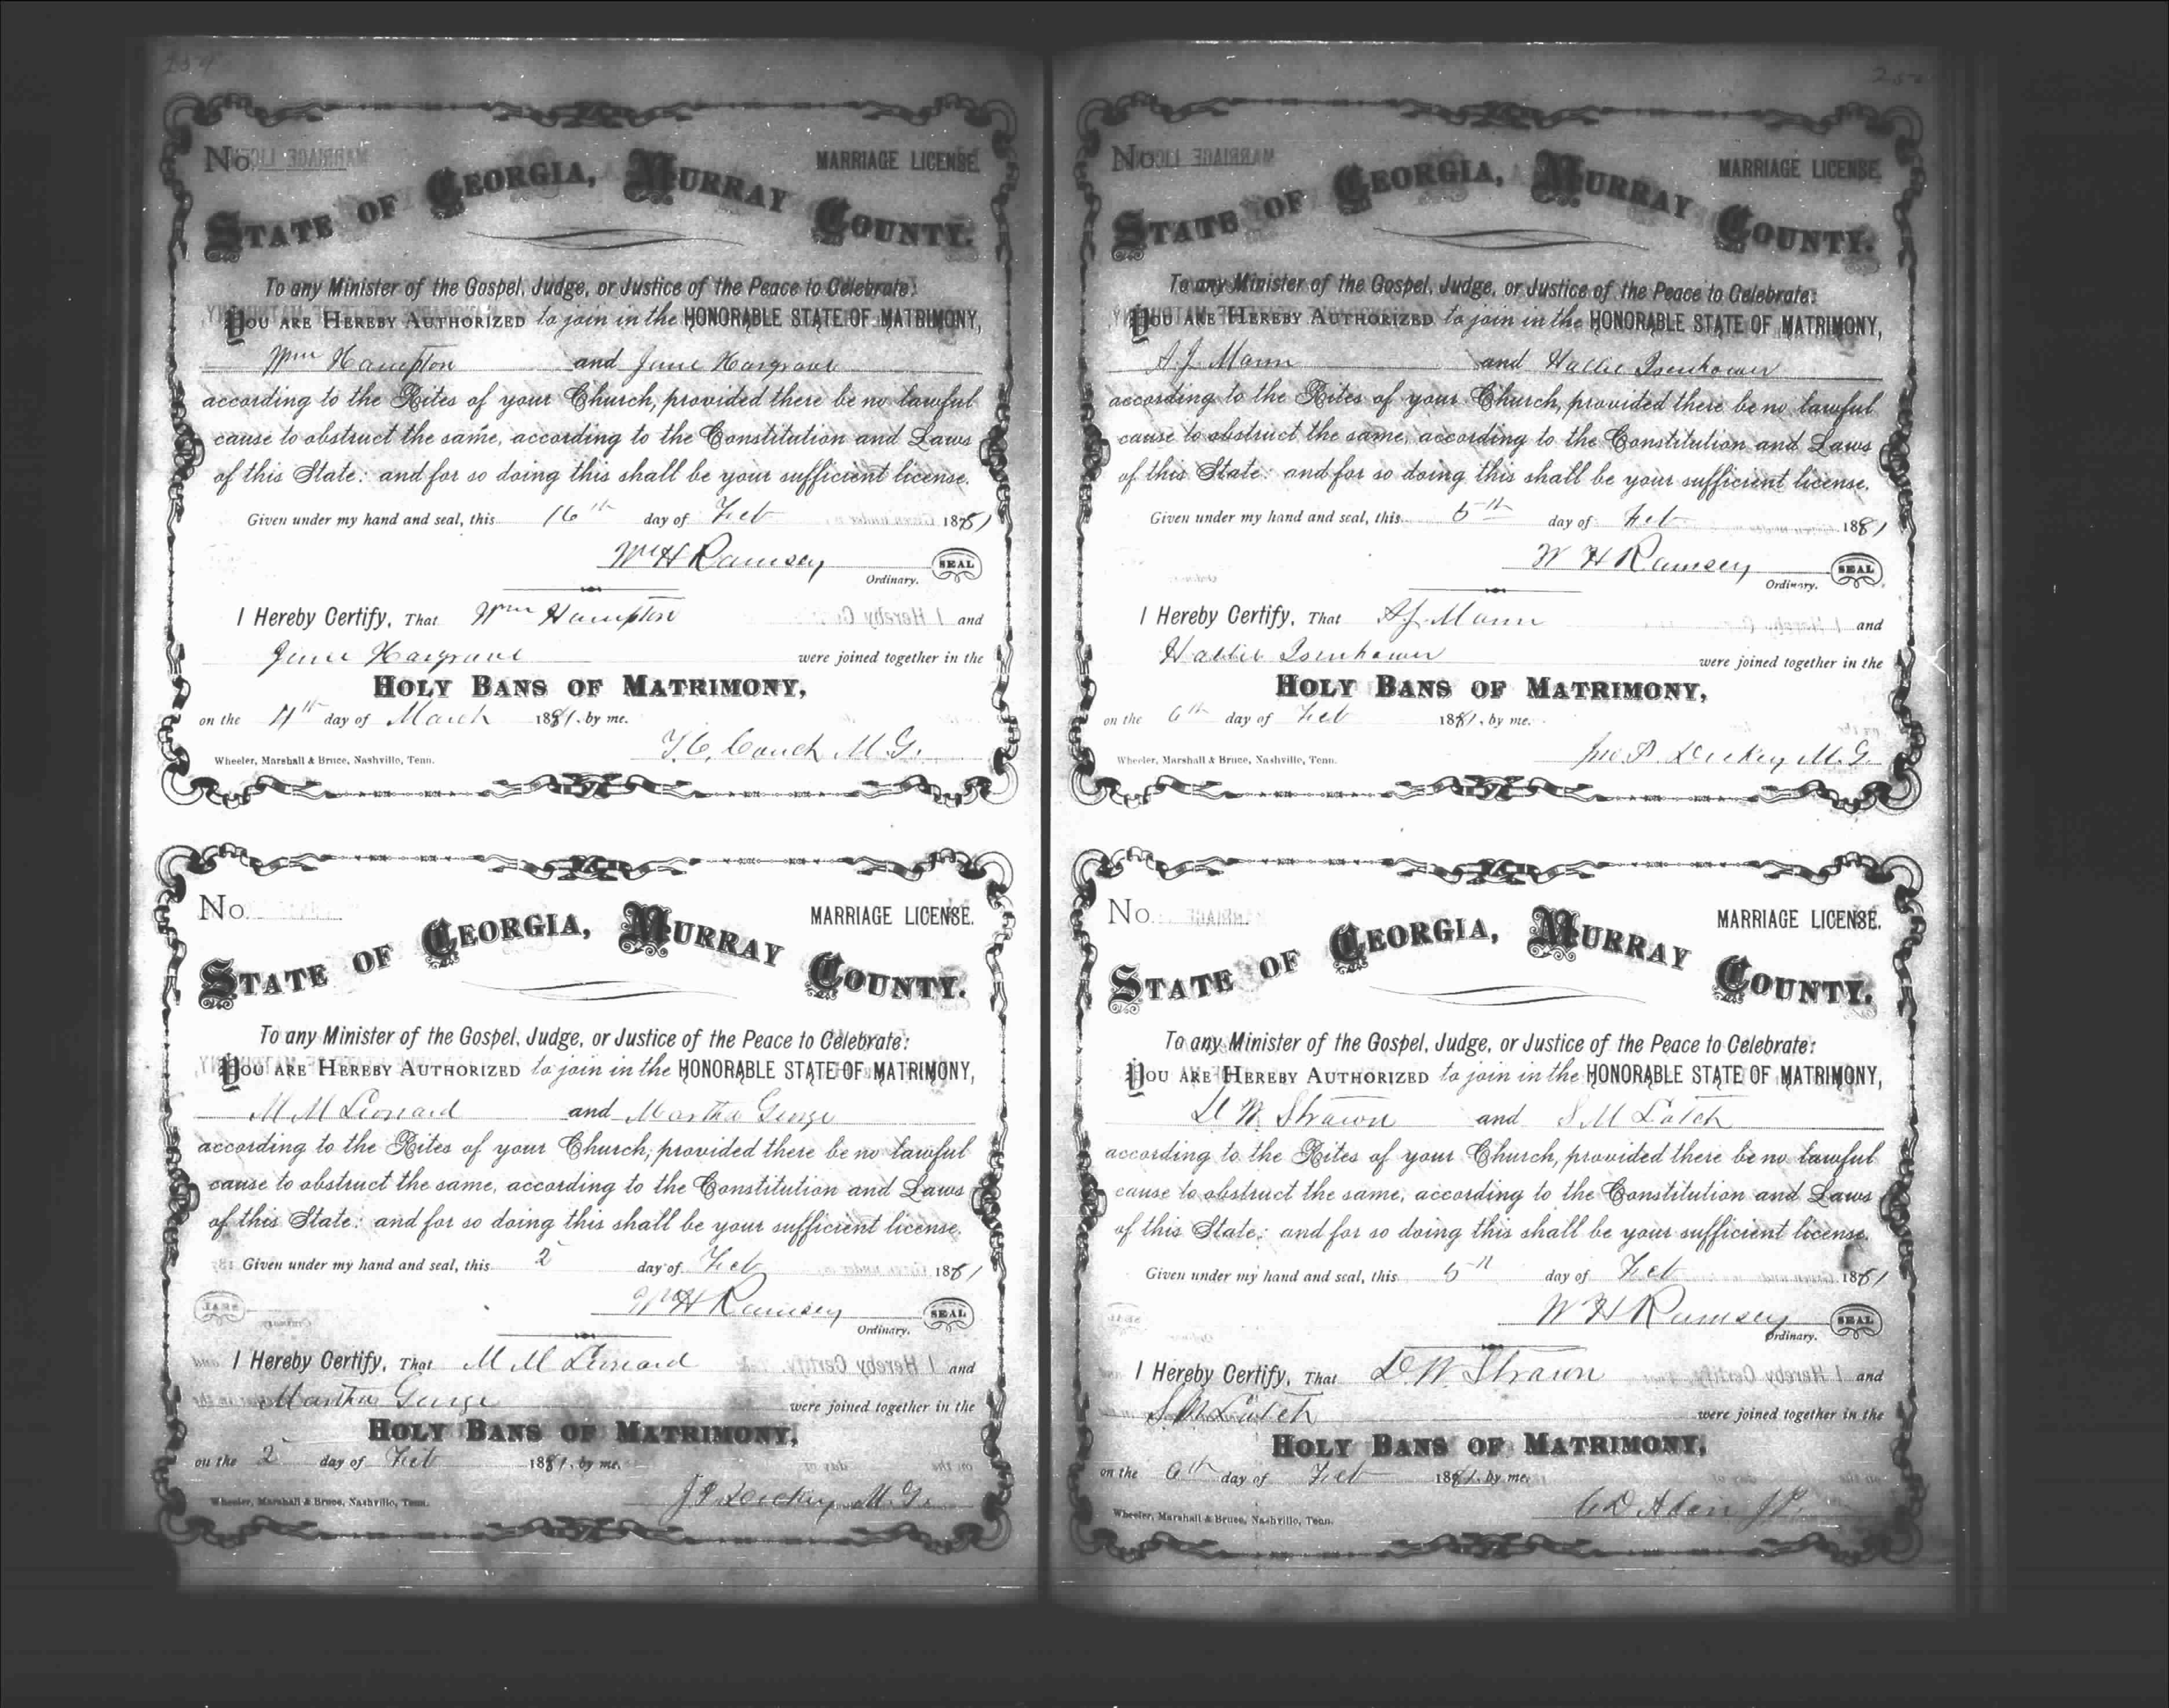 No.
MARRIAGE LICENSE.
STATE OF GEORGIA, MURRAY COUNTY.
To any Minister of the Gospel, Judge, or Justice of the Peace to Celebrate:
YOU ARE HEREBY AUTHORIZED to join in the HONORABLE STATE OF MATRIMONY,
Wm Hampton and Jane Hargrave
according to the Rites of your Church, provided there be no lawful
cause to obstruct the same, according to the Constitution and Laws
of this State: and for so doing this shall be your sufficient license.
Given under my hand and seal, this 16th day of Feb 1881
Wm H Ramsey SEAL
Ordinary.
I Hereby Certify, That Wm Hampton and
Jane Hargrave were joined together in the
HOLY BANS OF MATRIMONY,
on the 4th day of March 1881, by me.
Couch M.G.
Wheeler, Marshall & Bruce, Nashville, Tenn.
No.
MARRIAGE LICENSE.
STATE OF GEORGIA, MURRAY COUNTY.
To any Minister of the Gospel, Judge, or Justice of the Peace to Celebrate:
YOU ARE HEREBY AUTHORIZED to join in the HONORABLE STATE OF MATRIMONY,
M M Leonard and Martha George
according to the Rites of your Church, provided there be no lawful
cause to obstruct the same, according to the Constitution and Laws
of this State: and for so doing this shall be your sufficient license.
Given under my hand and seal, this 2 day of Feb 1881
Wm H Ramsey SEAL
Ordinary.
I Hereby Certify, That M M Leonard and
Martha George were joined together in the
HOLY BANS OF MATRIMONY,
on the 2 day of Feb 1881, by me.
J P Dickey M.G.
Wheeler, Marshall & Bruce, Nashville, Tenn.
No.
MARRIAGE LICENSE.
STATE OF GEORGIA, MURRAY COUNTY.
To any Minister of the Gospel, Judge, or Justice of the Peace to Celebrate:
YOU ARE HEREBY AUTHORIZED to join in the HONORABLE STATE OF MATRIMONY,
A.J. Mann and Hallie Isenhower
according to the Rites of your Church, provided there be no lawful
cause to obstruct the same, according to the Constitution and Laws
of this State: and for so doing this shall be your sufficient license.
Given under my hand and seal, this 5th day of Feb 1881
W H Ramsey SEAL
Ordinary.
I Hereby Certify, That A.J. Mann and
Hallie Isenhower were joined together in the
HOLY BANS OF MATRIMONY,
on the 6th day of Feb 1881, by me.
Jno P. Dickey M.G.
Wheeler, Marshall & Bruce, Nashville, Tenn.
No.
MARRIAGE LICENSE.
STATE OF GEORGIA, MURRAY COUNTY.
To any Minister of the Gospel, Judge, or Justice of the Peace to Celebrate:
YOU ARE HEREBY AUTHORIZED to join in the HONORABLE STATE OF MATRIMONY,
D W Strawn and S M Latch
according to the Rites of your Church, provided there be no lawful
cause to obstruct the same, according to the Constitution and Laws
of this State: and for so doing this shall be your sufficient license.
Given under my hand and seal, this 5th day of Feb 1881
W H Ramsey SEAL
Ordinary.
I Hereby Certify, That D. W. Strawn and
S M Latch were joined together in the
HOLY BANS OF MATRIMONY,
on the 6th day of Feb 1881, by me.
C D Aben J P.
Wheeler, Marshall & Bruce, Nashville, Tenn.